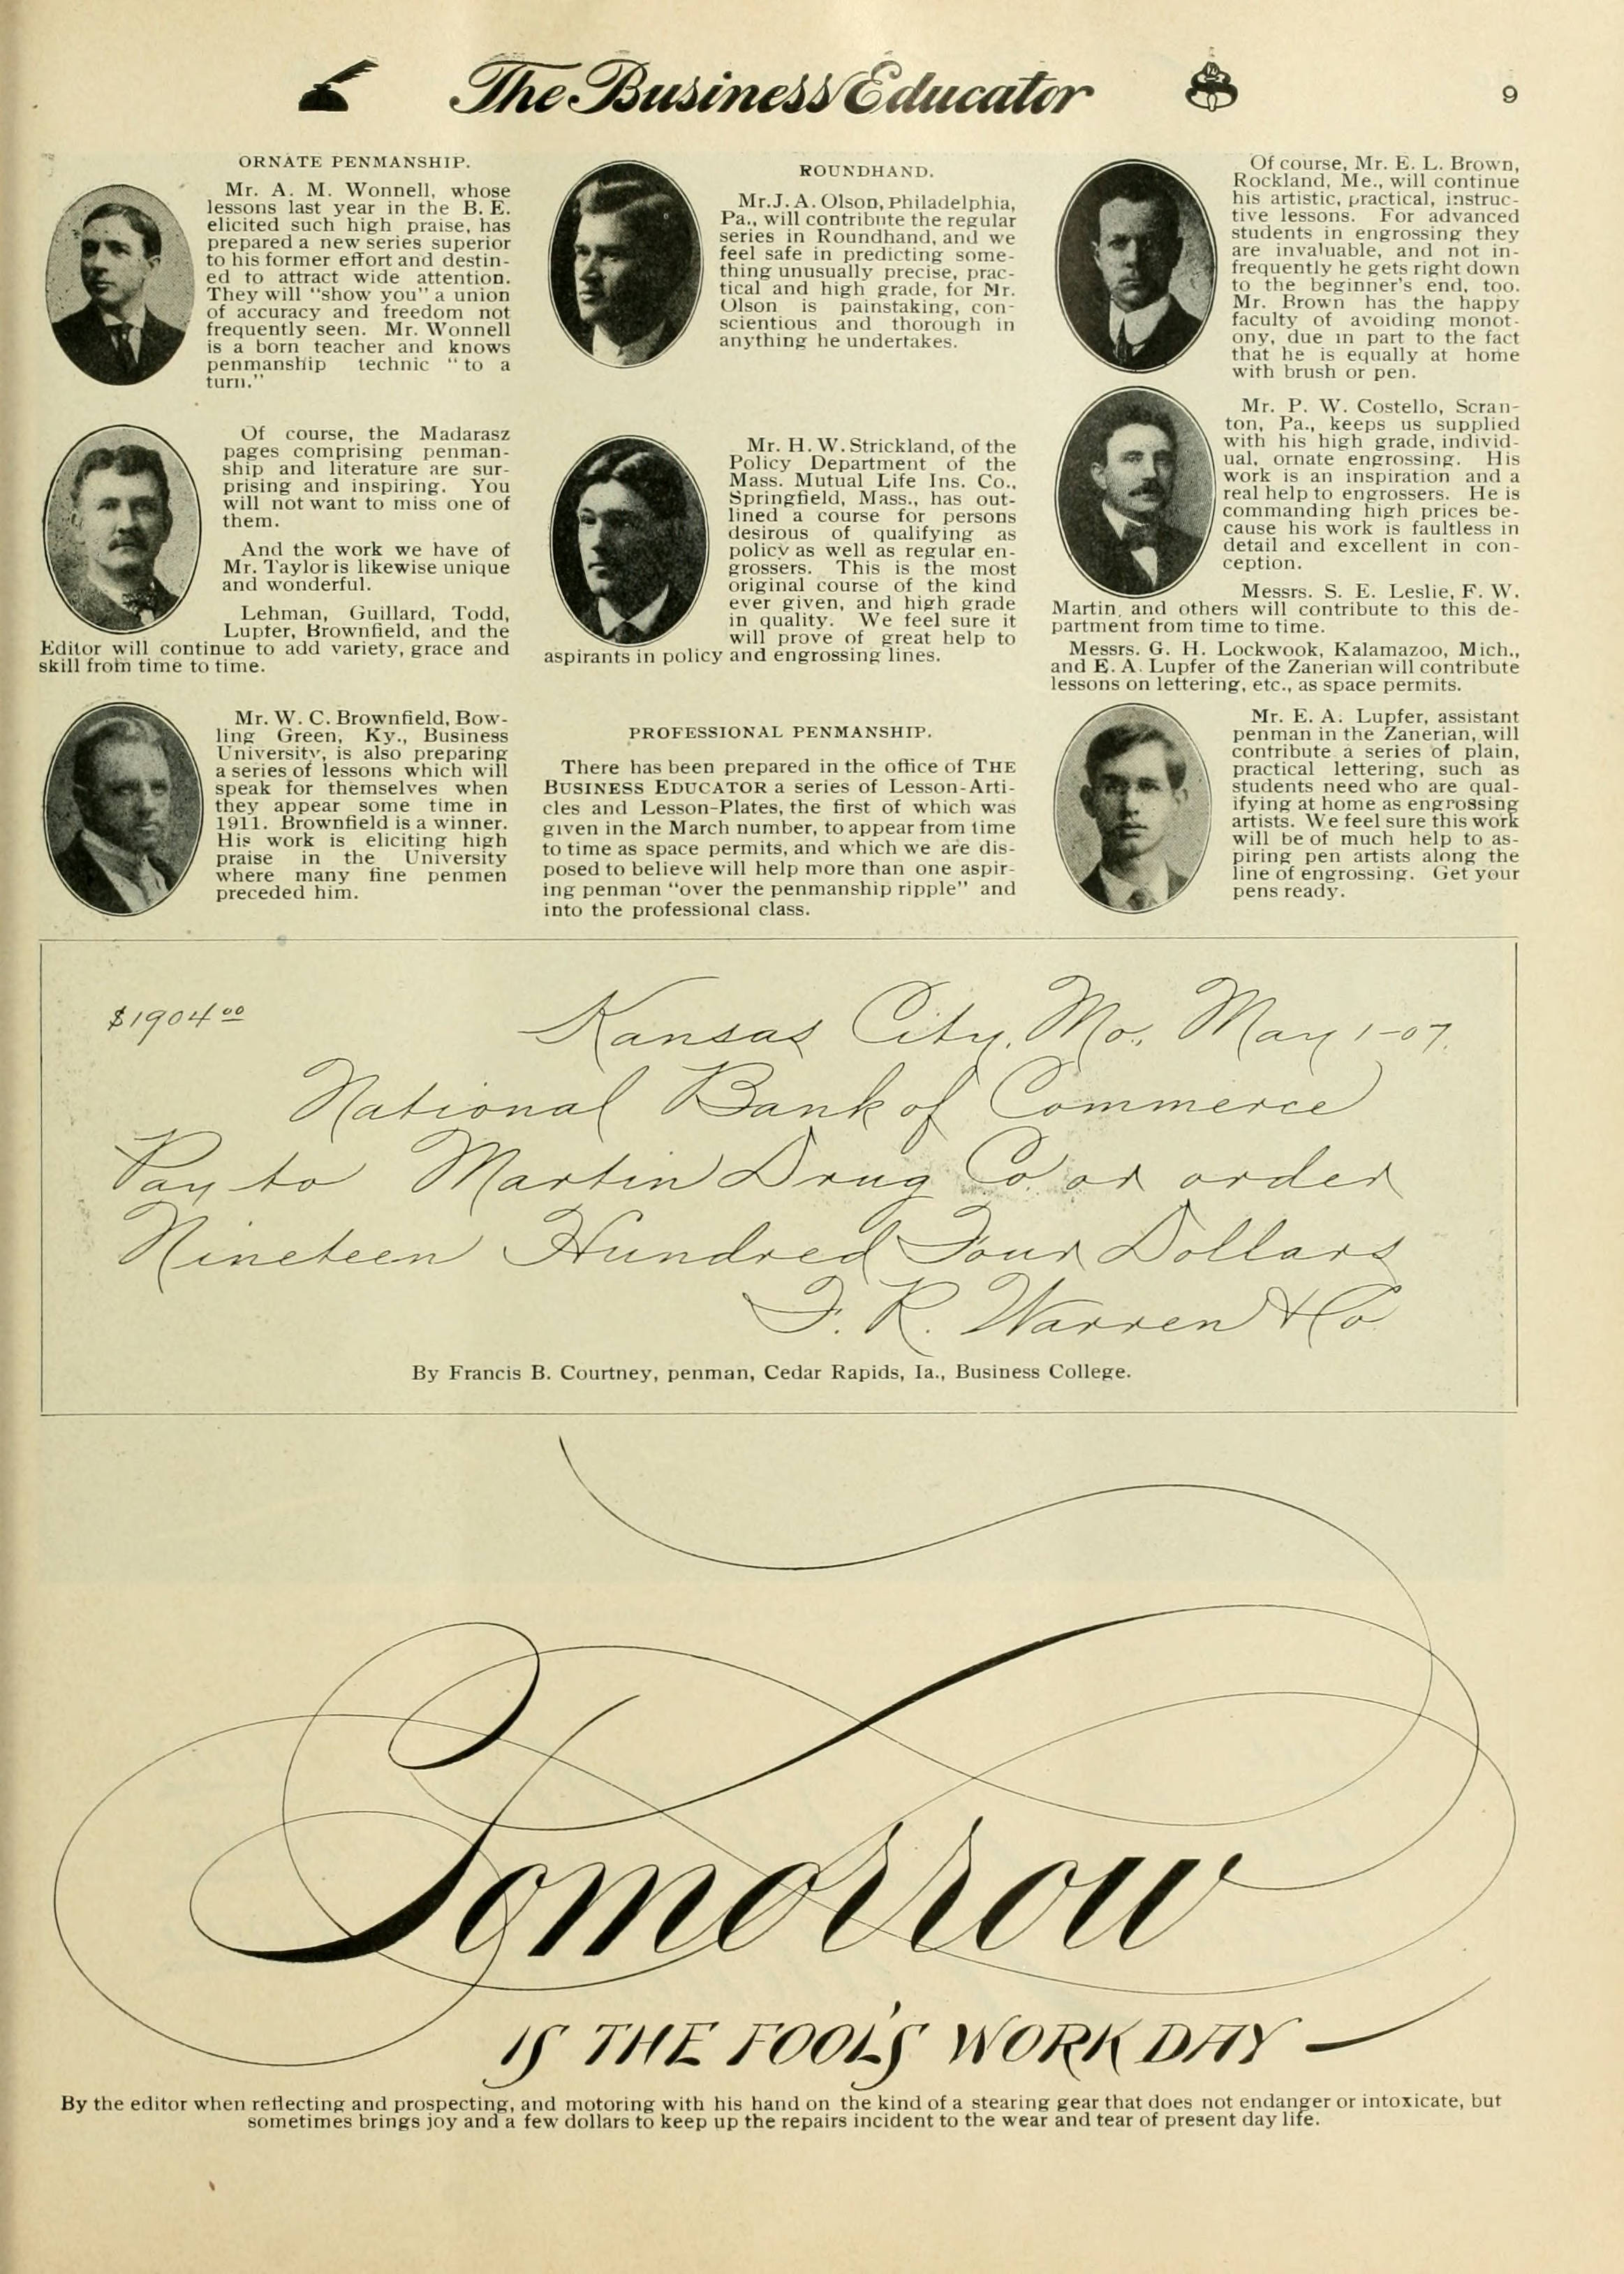 The Business Educator
9
ORNATE PENMANSHIP.
Mr. A. M. Wonnell, whose
lessons last year in the B. E.
elicited such high praise, has
prepared a new series superior
to his former effort and destin-
ed to attract wide attention.
They will "show you" a union
of accuracy and freedom not
frequently seen. Mr. Wonnell
is a born teacher and knows
penmanship technic "to a
turn."
Of course, the Madarasz
pages comprising penman-
ship and literature are sur-
prising and inspiring. You
will not want to miss one of
them.
And the work we have of
Mr. Taylor is likewise unique
and wonderful.
Lehman, Guillard, Todd,
Lupter, Brownfield, and the
Editor will continue to add variety, grace and
skill from time to time.
Mr. W. C. Brownfield, Bow-
ling Green, Ky., Business
University, is also preparing
a series of lessons which will
speak for themselves when
they appear some time in
1911. Brownfield is a winner.
His work is eliciting high
praise in the University
where many fine penmen
preceded him.
ROUNDHAND.
Mr. J. A. Olson, Philadelphia,
Pa., will contribute the regular
series in Roundhand, and we
feel safe in predicting some-
thing unusually precise, prac-
tical and high grade, for Mr.
Olson is painstaking, con-
scientious and thorough in
anything he undertakes.
Mr. H. W. Strickland, of the
Policy Department of the
Mass. Mutual Life Ins. Co.,
Springfield, Mass., has out-
lined a course for persons
desirous of qualifying as
policy as well as regular en-
grossers. This is the most
original course of the kind
ever given, and high grade
in quality. We feel sure it
will prove of great help to
aspirants in policy and engrossing lines.
PROFESSIONAL PENMANSHIP.
There has been prepared in the office of THE
BUSINESS EDUCATOR a series of Lesson-Arti-
cles and Lesson-Plates, the first of which was
given in the March number, to appear from time
to time as space permits, and which we are dis-
posed to believe will help more than one aspir-
ing penman "over the penmanship ripple" and
into the professional class.
Of course, Mr. E. L. Brown,
Rockland, Me., will continue
his artistic, practical, instruc-
tive lessons. For advanced
students in engrossing they
are invaluable, and not in-
frequently he gets right down
to the beginner's end, too.
Mr. Brown has the happy
faculty of avoiding monot-
ony, due in part to the fact
that he is equally at home
with brush or pen.
Mr. P. W. Costello, Scran-
ton, Pa., keeps us supplied
with his high grade, individ-
ual, ornate engrossing. His
work is an inspiration and a
real help to engrossers. He is
commanding high prices be-
cause his work is faultless in
detail and excellent in con-
ception.
Messrs. S. E. Leslie, F. W.
Martin, and others will contribute to this de-
partment from time to time.
Messrs. G. H. Lockwook, Kalamazoo, Mich.,
and E. A. Lupfer of the Zanerian will contribute
lessons on lettering, etc., as space permits.
Mr. E. A. Lupfer, assistant
penman in the Zanerian, will
contribute a series of plain,
practical lettering, such as
students need who are qual-
ifying at home as engrossing
artists. We feel sure this work
will be of much help to as-
piring pen artists along the
line of engrossing. Get your
pens ready.
$1904.00 Kansas City, Mo., May 1-07.
National Bank of Commerce
Pay to Martin Drug Co. or order
Nineteen Hundred Four Dollars
F. R. Warren & Co
By Francis B. Courtney, penman, Cedar Rapids, Ia., Business College.
Tomorrow
IS THE FOOL'S WORK DAY
By the editor when reflecting and prospecting, and motoring with his hand on the kind of a stearing gear that does not endanger or intoxicate, but
sometimes brings joy and a few dollars to keep up the repairs incident to the wear and tear of present day life.